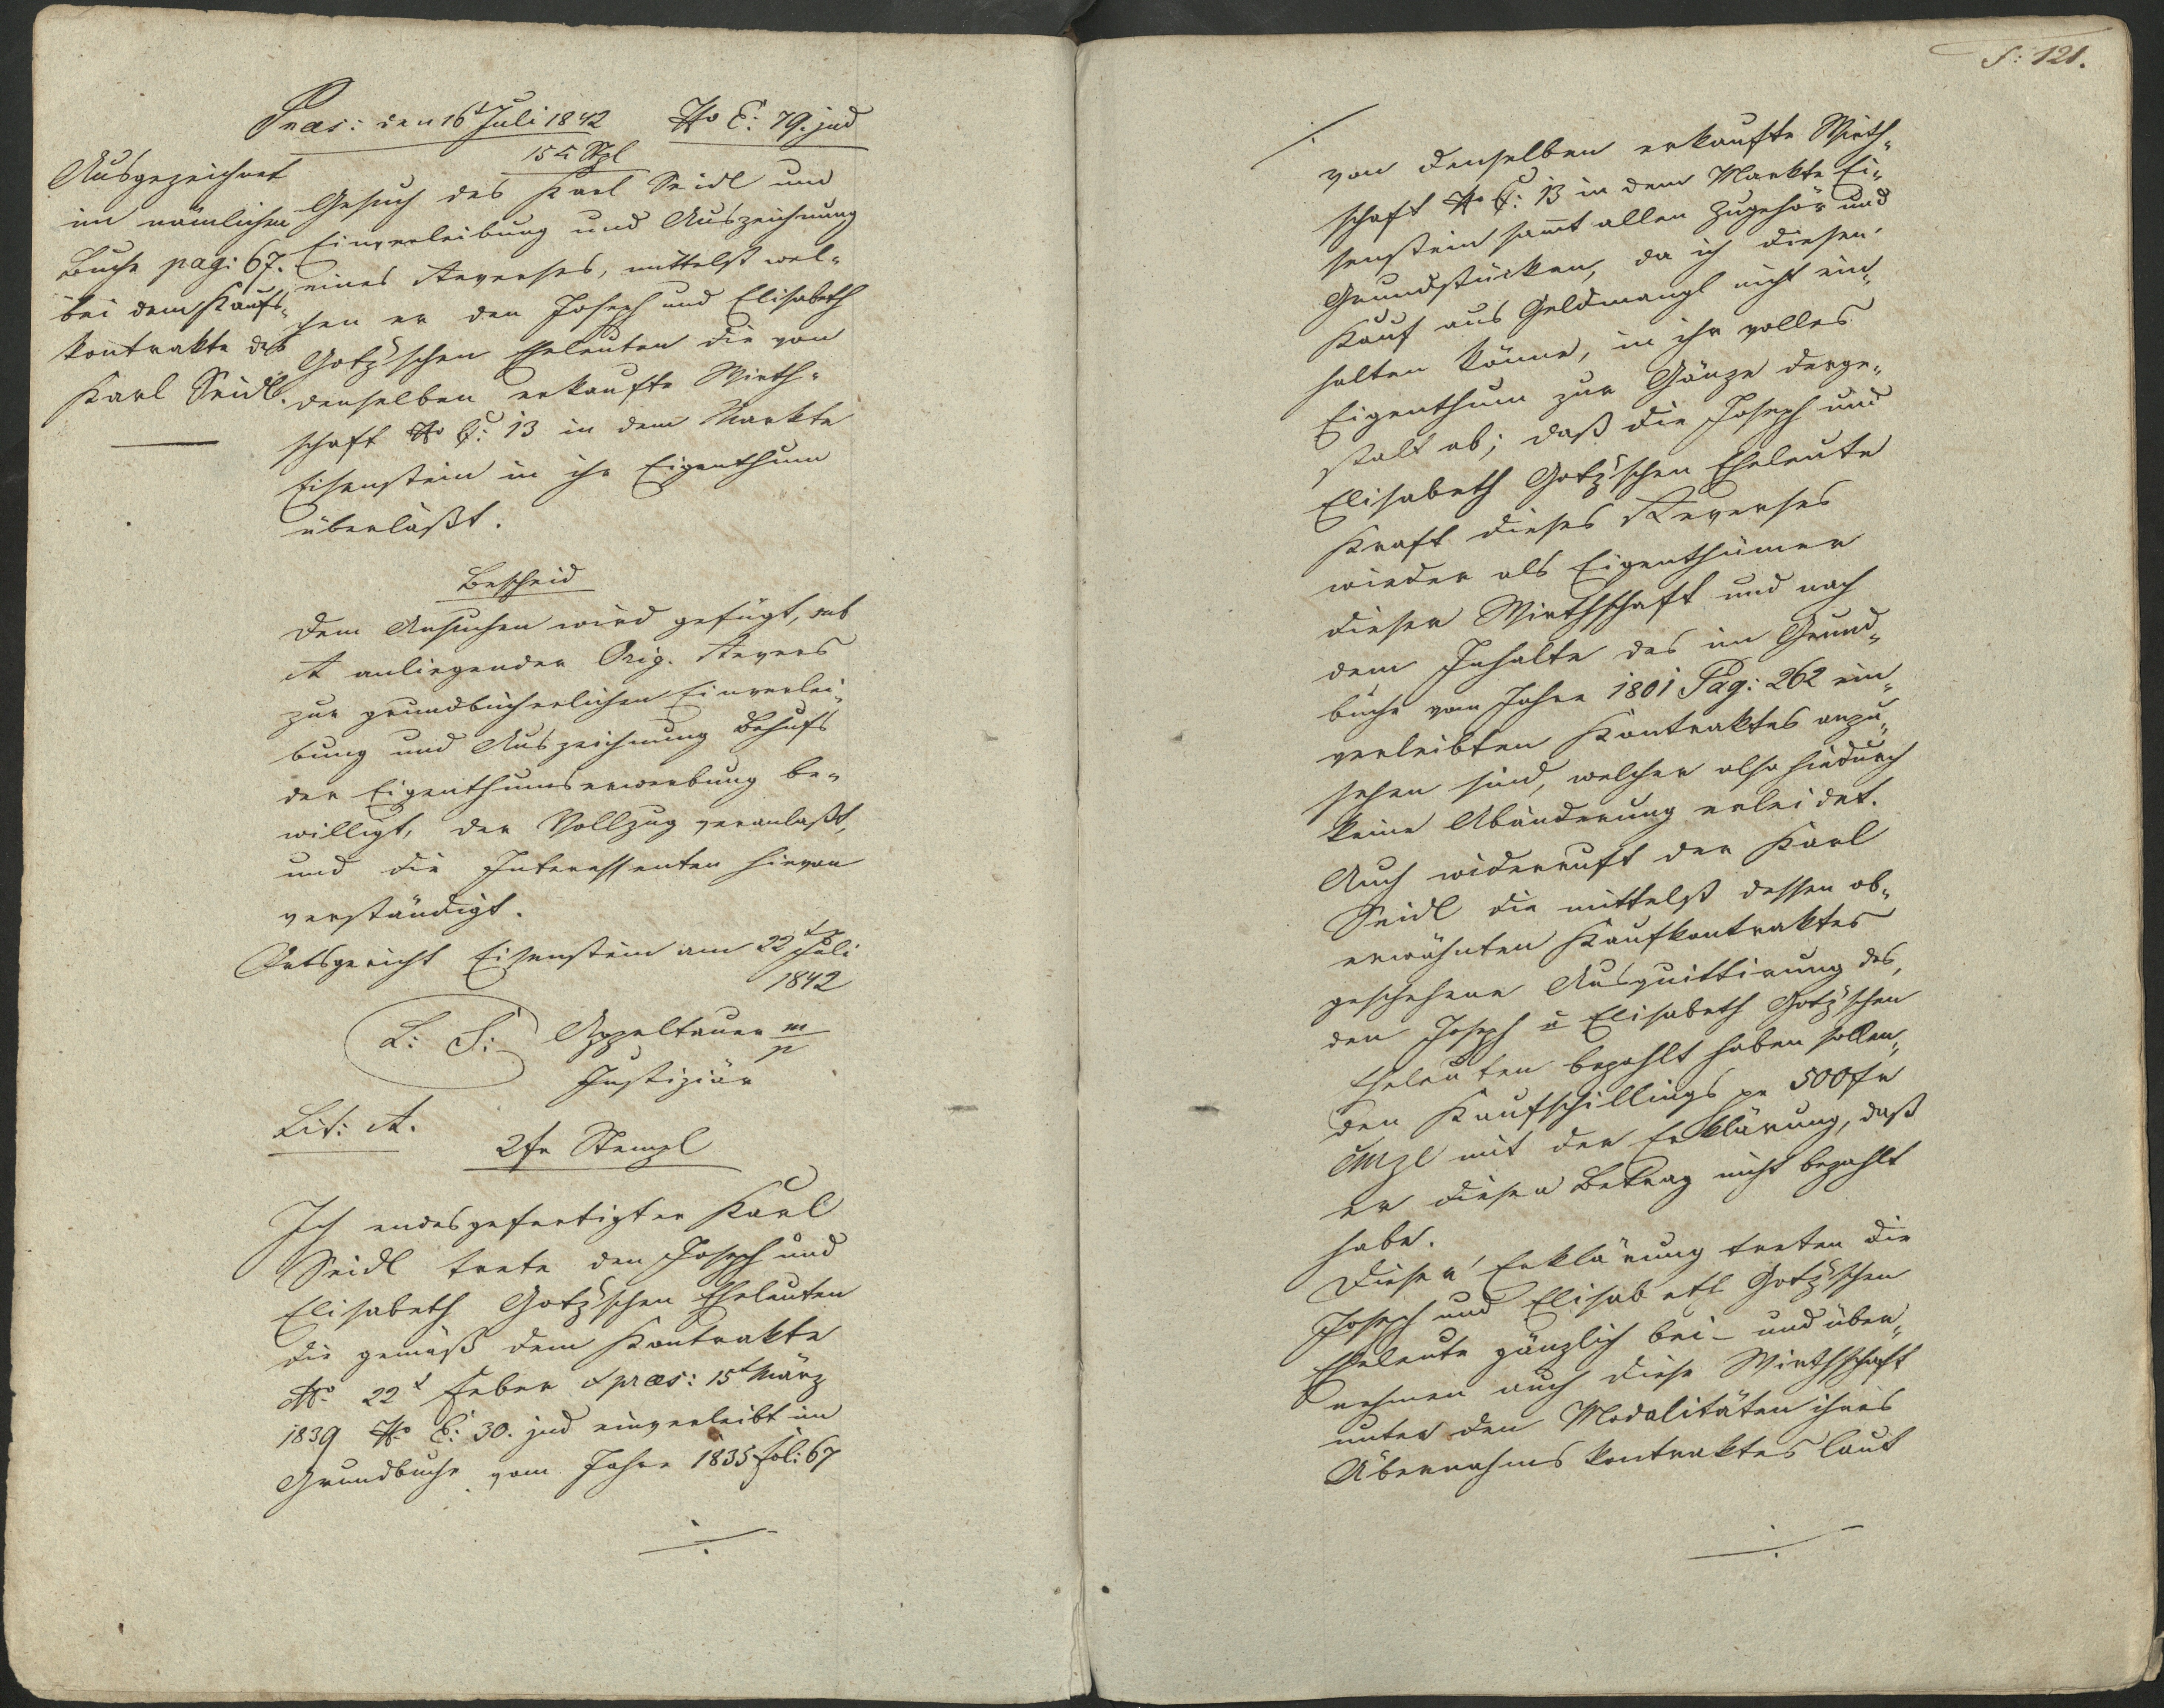 Praes: den 16t Juli 1842 No E: 79. jud
15 x Stpl
Ausgezeichnet
im nämlichen
Buche pag: 67.
bei dem Kaufs-
kontrakte des
Karl Seidl.
Gesuch des Karl Seidl um
Einverleibung und Auszeichnung
eines Reverses, mittelst wel-
chen er den Joseph und Elisabeth
Gotz'schen Eheleuten die von
denselben erkaufte Wirth-
schaft No C: 13 in dem Markte
Eisenstein in ihr Eigenthum
überläßt.
Bescheid
Dem Ansuchen wird gefügt, sub
A anliegender Orig. Revers
zur grundbücherlichen Einverlei-
bung und Auszeichnung Behufs
der Eigenthumserwerbung be-
willigt, der Vollzug veranlaßt,
und die Interessenten hievon
verständigt.
Ortsgericht Eisenstein am 22t Juli
1842
L: S: Appeltauer m/p
Justiziär
Lit: A.
2 fr Stempl
Ich endesgefertigter Karl
Seidl trete den Joseph und
Elisabeth Gotz'schen Eheleuten
die gemäß dem Kontrakte
22t Feber praes: 15t März
1839 No E: 30. jud einverleibt im
Grundbuche vom Jahre 1835 fol: 67
f: 121.
von denselben erkaufte Wirth-
schaft No C: 13 in dem Markte Ei-
senstein sammt allen Zugehör und
Grundstücken, da ich diesen
Kauf aus Geldmangl nicht ein-
halten könne, in ihr volles
Eigenthum zur Gänze derge-
stalt ab; daß die Joseph und
Elisabeth Gotz'schen Eheleute
Kraft dieses Reverses
wieder als Eigenthümer
dieser Wirthschaft und nach
dem Inhalte des im Grund-
buche vom Jahre 1801 Pag: 262 ein-
verleibten Kontraktes anzu-
sehen sind, welcher also hiedurch
keine Abänderung erleidet.
Auch widerruft der Karl
Seidl die mittelst dessen ob-
erwähnten Kaufkontraktes
geschehene Ausquittirung des,
den Joseph u Elisabeth Gotz'schen
Eheleuten bezahlt haben sollen-
den Kaufschillings pr 500 fr
CMzl mit der Erklärung, daß
er diesen Betrag nicht bezahlt
habe.
Dieser Erklärung treten die
Joseph und Elisabeth Gotz'schen
Eheleute gänzlich bei - und über-
nehmen auch diese Wirthschaft
unter den Modalitäten ihres
Übernahmskontraktes laut